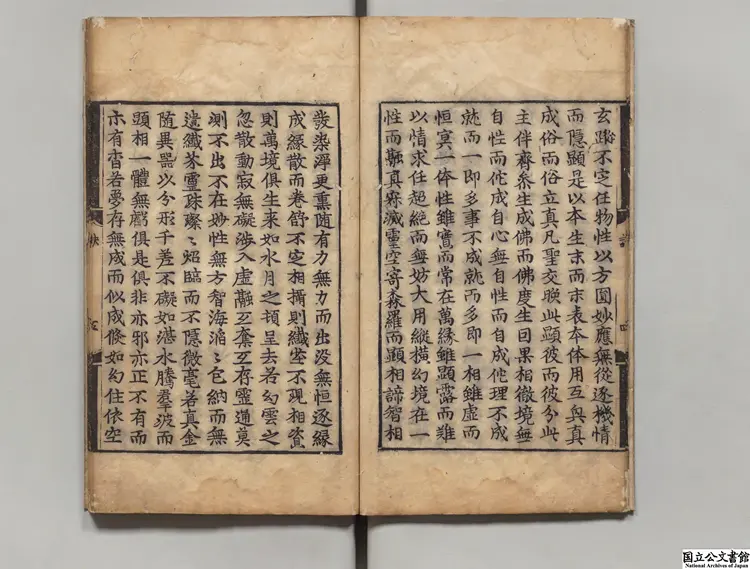 玄蹤不定任物性以方圓妙應無從逐機情
而隱顯是以本生末而末表本体用互兴真
成俗而俗立真凡聖交暎此顯彼而彼分此
主伴齊叅生成佛而佛度生因果相徹境無
自性而佗成自心無自性而自成佗理不成
就而一即多事不成就而多即一相雖虛而
恒冥一体性雖實而常在萬緣雖顯露而難
以情求任超絶而無妨大用縱橫幻境在一
性而融真寂滅靈空寄森羅而顯相諦智相
發染淨更熏随有力無力而出没無恒逐緣
成緣散而卷舒不定相攝則纎塵不現相資
則萬境俱生来如水月之頓呈去若幻雲之
忽散動寂無礙涉入虛融互奪互存靈通莫
測不出不在妙性無方智海滔〻包納而無
遺纎芥靈珠璨〻炤臨而不隱微毫若真金
随異器以分形千差不礙如湛水騰羣波而
顯相一體無虧俱是俱非亦邪亦正不有而
示有杳若夢存無成而似成倏如幻住依空
訣
国立公文書館
National Archives of Japan